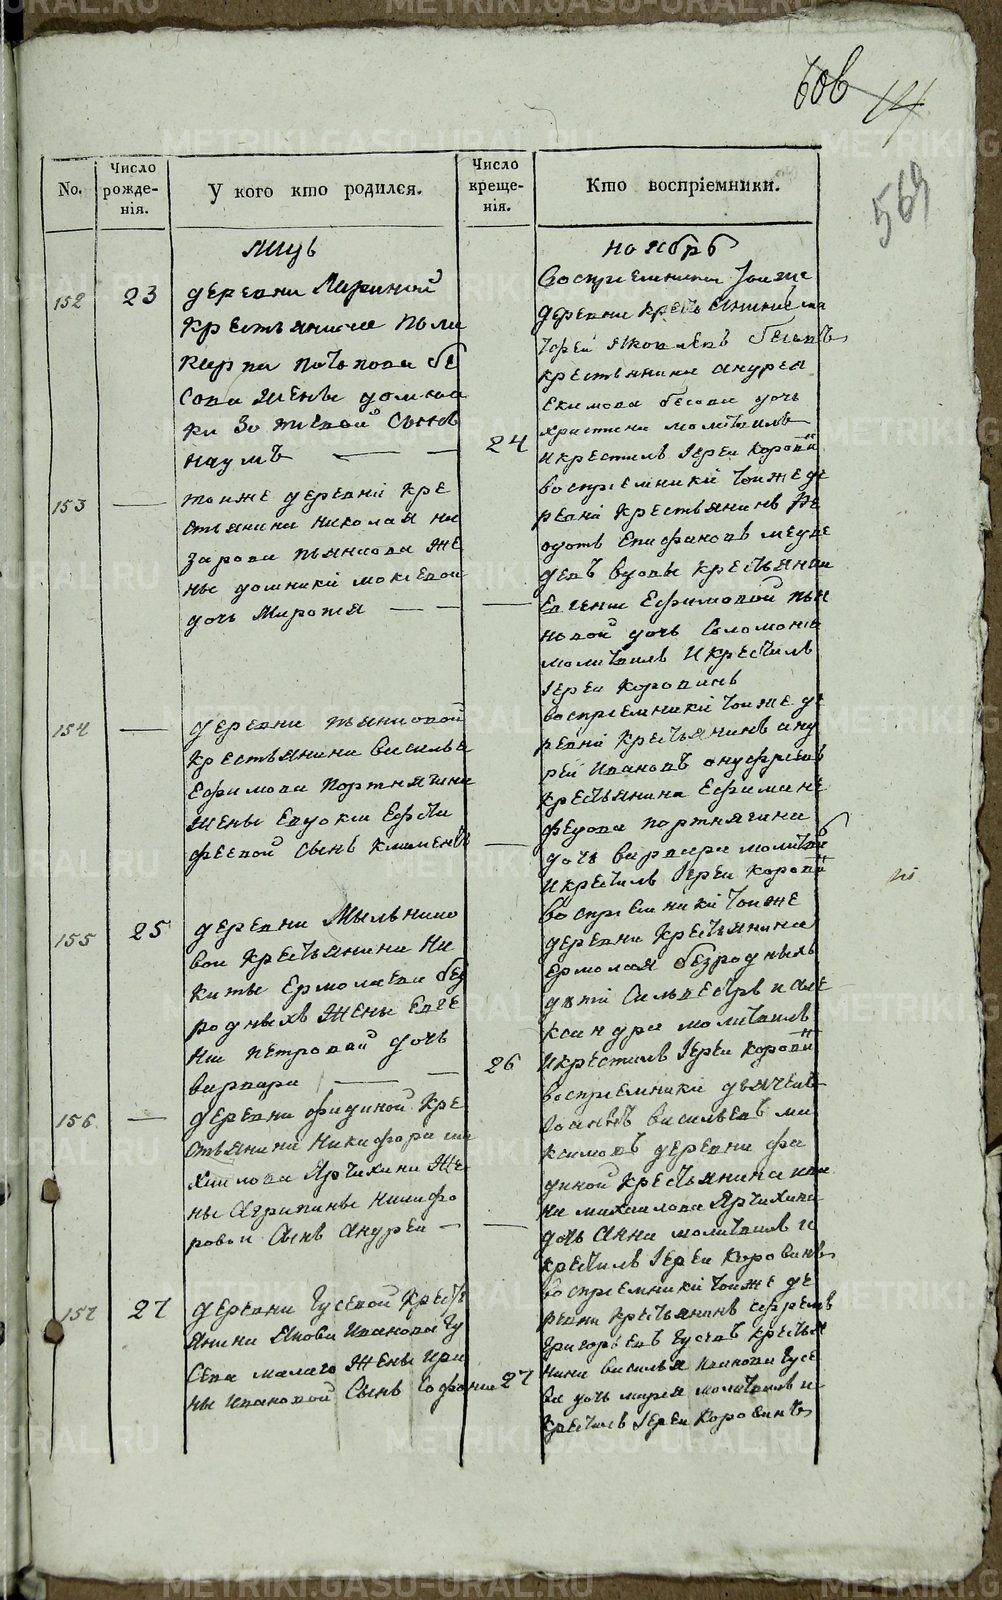 14
569
No.
Число рожде-нія.
У кого кто родился.
Число креще-нія.
Кто воспріемники.
мцъ
ноябрь
152
23
деревни
крестьянина Поли
карпа Потапова бе
сова жены домна
ки Зотиевой сынъ
наумъ
24
воспріемники тоиже
деревни
Яковлевъ
крестьянина андрея
Екимова бесова дочь
христина молитвилъ
и крестилъ Іереи
153
тоиже деревни кре
стьянина николая на
зарова пьянкова же
ны домники мокиевой
дочь
воспріемники тоиже де
ревни крестьянинъ Фе
дотъ Епифановъ медве
девъ вдовы крестьянки
Евгении Ефимовой
дочь Соломонія
молитвилъ и крестилъ
Іереи Коровинъ
154
деревни
крестьянина василья
Ефимова Портнягина
жены Евдокии Ефсти
феевой сынъ климентъ
воспріемники тоиже де
ревни крестьянинъ анд
рей Ивановъ онуфриевъ
крестьянина Ефима не
федова портнягина
дочь варвара молитвил
и крестилъ Іереи
155
25
деревни Мыльнико
вои крестьянина Ни
киты Ермолаева без
родныхъ жены Евге
нии петровой дочь
варвара
26
воспріемники тоиже
деревни крестьянина
ермолая безродныхъ
дѣти Сильвестръ и але
ксандра молитвилъ
и крестилъ Іереи
156
деревни фадиной кре
стьянина Никифора ми
хаилова Ярчихина же
ны Агрипины никифо
ровои сынъ андреи
воспріемники дьячекъ
Іоаннъ васильевъ ма
ксимовъ деревни фа
диной крестьянина ива
на михаилова Ярчихина
дочь Анна молитвилъ и
крестилъ Іереи Коровинъ
157
27
деревни Гусевой кресть
янина Якова Иванова Гу
сева малаго жены Ири
ны ивановой сынъ Софоніи
27
воспріемники тоиже де
ревни крестьянинъ ефремъ
Григорьевъ Гусевъ крестья
нина василья иванова Гусе
ва дочь марья молитвилъ и
крестилъ Іереи Коровинъ
METRIKI.GASU-URAL.RU